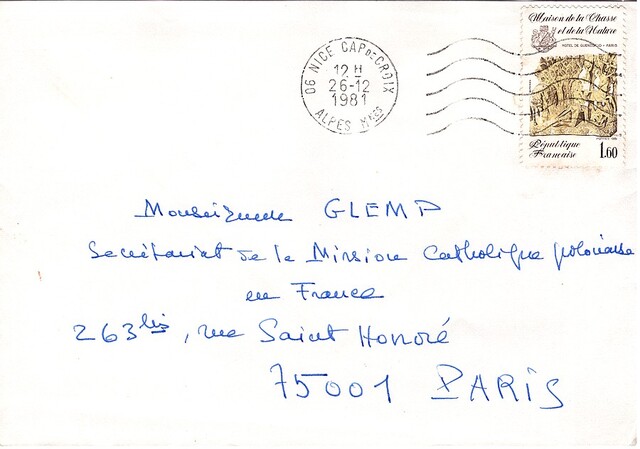 Maison de la Chasse
et de la Nature
HOTEL DE GUENEGAUD - PARIS
République
Française
1,60
06 NICE CAP DE CROIX
12 H
26-12
1981
ALPES MMES
Monseigneur GLEMP
Secrétariat de la Mission Catholique polonaise
en France
263 bis, rue Saint Honoré
75001 PARIS